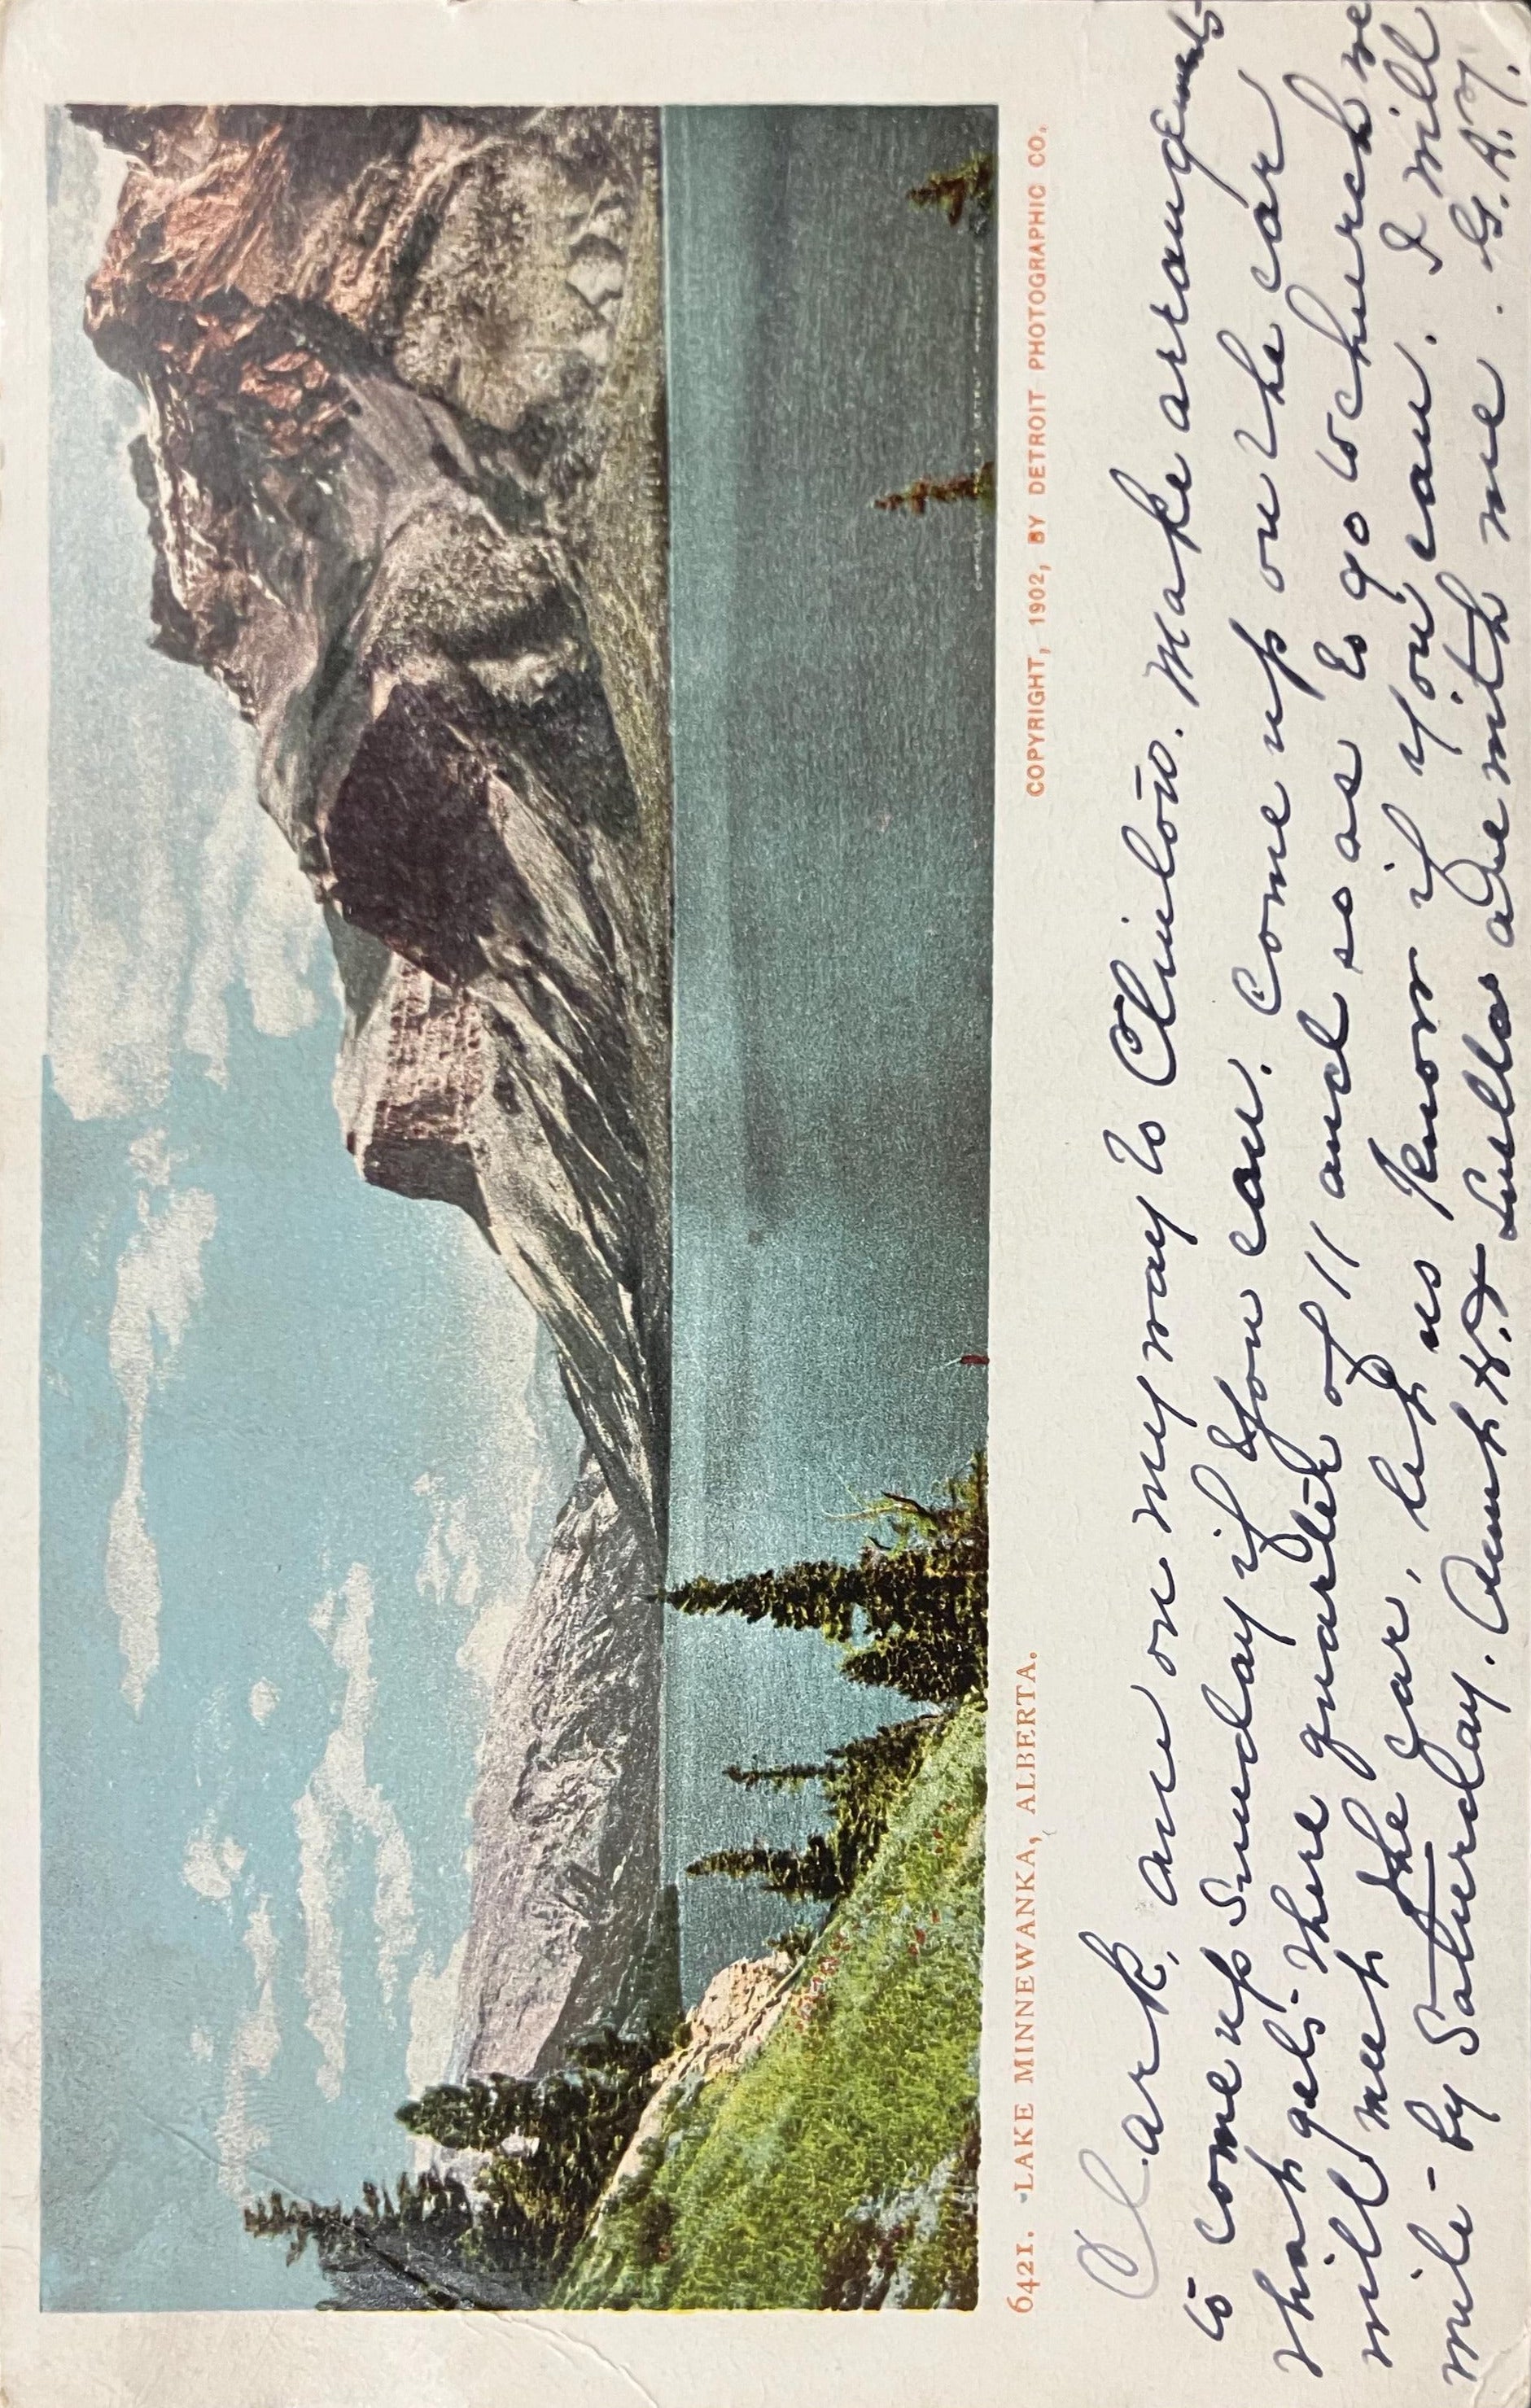 6421. LAKE MINNEWANKA, ALBERTA.
COPYRIGHT, 1902, BY DETROIT PHOTOGRAPHIC CO.
Clark, am on my way to Clinton. Make arrangements
to come up Sunday if you can. Come up on the car
that gets there quarter of 11 and so as to go to church we
will meet the car, let us know if you can. I will
write by Saturday. Aunt H. & Lulla are with me. G. R. T.